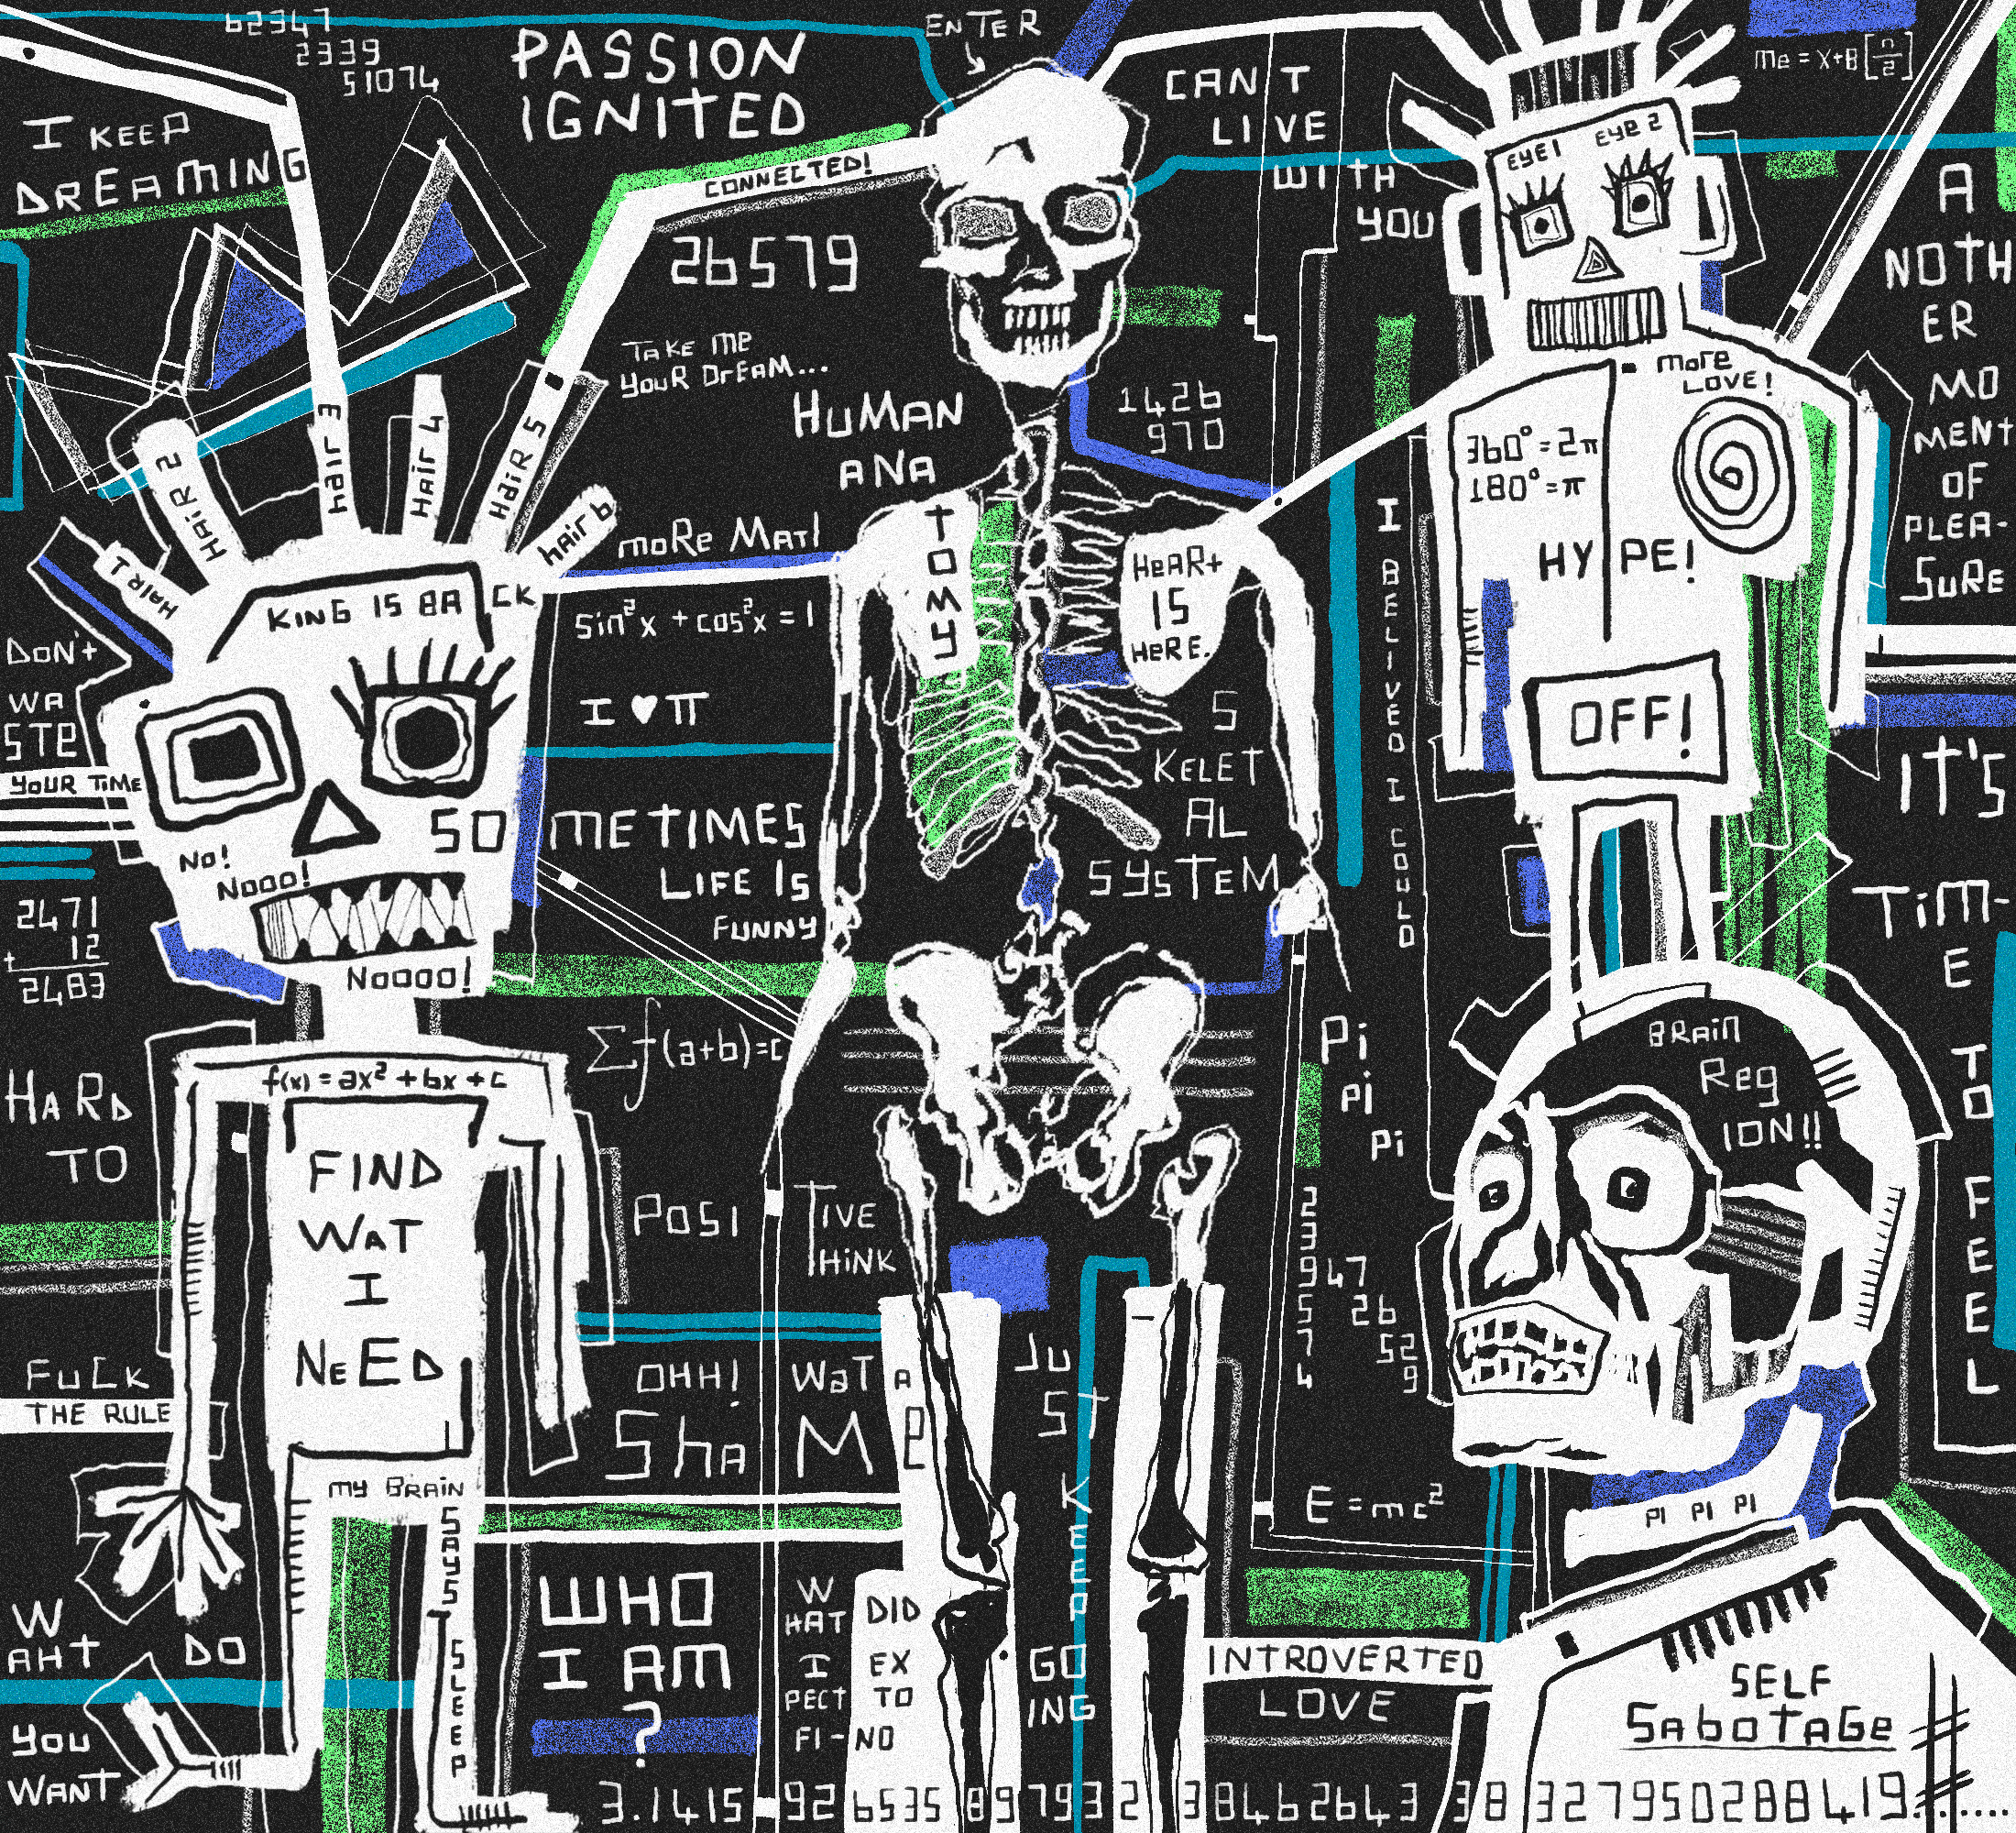 62347
2339
51074
PASSION
IGNITED
ENTER
CAN'T
LIVE
WITH
YOU
me = x+B[n/2]
I KEEP
DREAMING
CONNECTED!
26579
EYE1 EYE 2
A
NOTH
ER
MO
MENT
OF
PLEA-
SURE
TAKE ME
YOUR DrEAM...
HUMAN
ANA
TOMY
1426
970
more
LOVE!
360°=2π
180°=π
HYPE!
OFF!
HAIR 1
HAIR 2
HAIR 3
HAIR 4
HAIR 5
hair 6
moRe MATI
sin²x + cos²x = 1
I ♥ π
HeART
IS
HERE.
I BELIVED I COULD
KING IS BACK
DON'T
WA
STE
YOUR TIME
SOMETIMES
LIFE IS
FUNNY
S
KELET
AL
SYSTEM
IT'S
TIM-
E
TO
FEEL
No!
Nooo!
Noooo!
2471
+ 12
2483
Σf(a+b)=c
Pi
Pi
Pi
BRAIN
Reg
ION!!
HARD
TO
f(x) = ax² + bx + c
FIND
WAT
I
NEED
POSITIVE
THINK
2
3
9 47
5 26
7 52
4 9
FUCK
THE RULE
OHH! WaT A
ShaME
JU
ST
KEEP
GO
ING
E = mc²
my BRAIN
SAYS
SLEEP
PI PI PI
W
AHT DO
YOU
WANT
WHO
I AM
?
W
HAT DID
I EX
PECT TO
FI-NO
INTROVERTED
LOVE
SELF
SaboTaGe
3.1415 92 6535 89 793 2 3 8462643 3 8 327950288419........